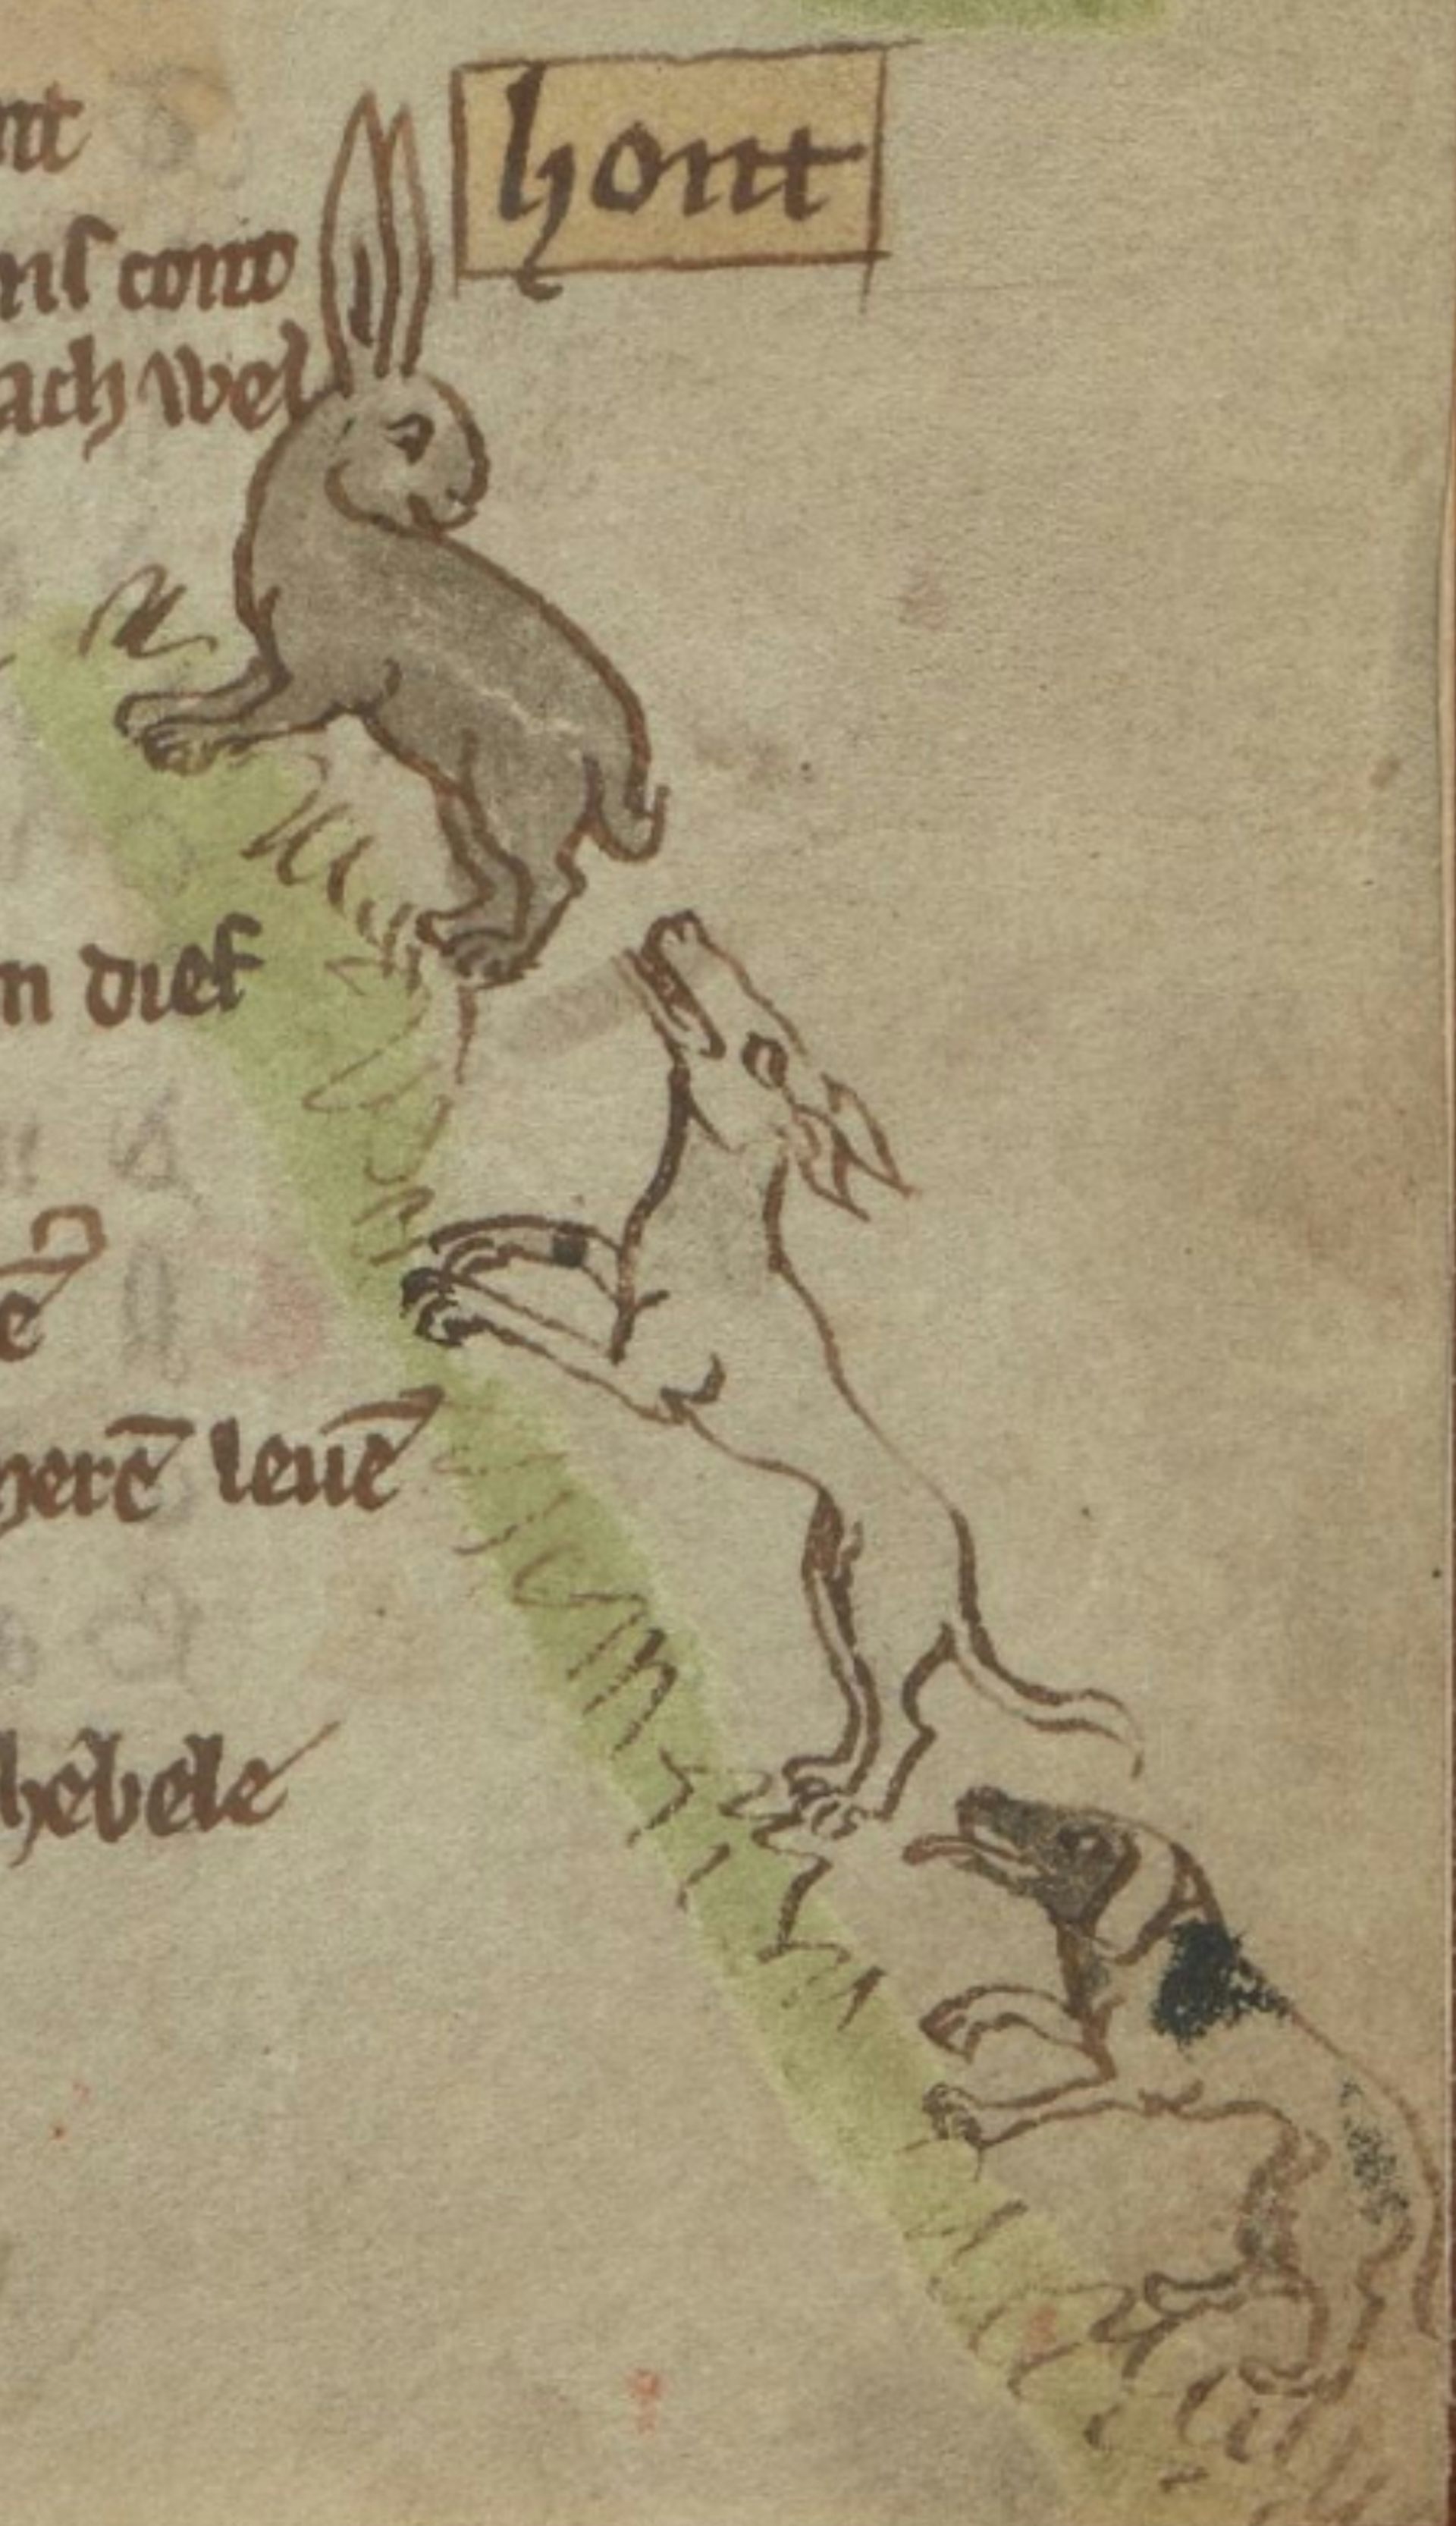 hont
nt
nſ comt
ach wel
n dief
ē
herē leuē
hēbele